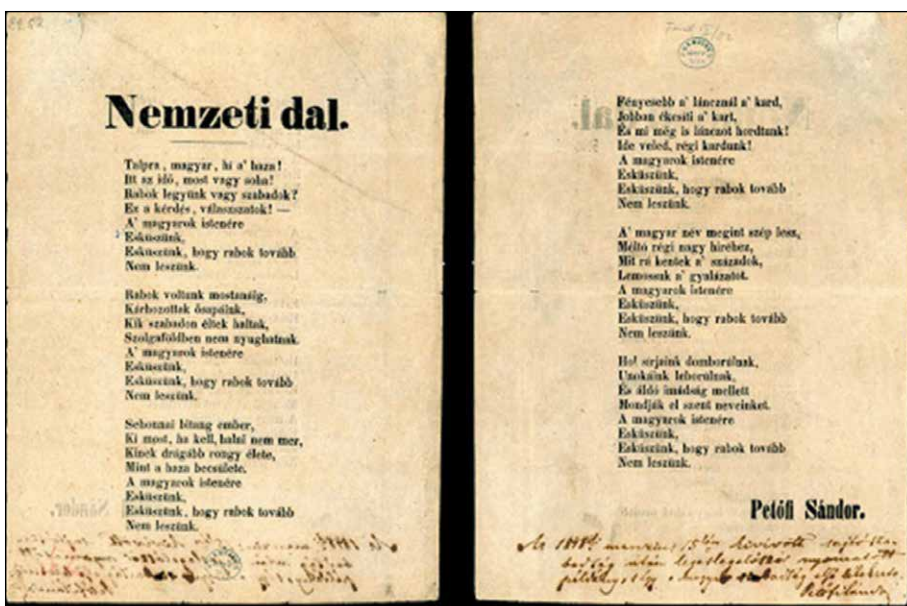 Nemzeti dal.
Talpra, magyar, hi a' haza!
Itt az idő, most vagy soha!
Rabok legyünk vagy szabadok?
Ez a kérdés, válaszszatok! —
A' magyarok istenére
Esküszünk,
Esküszünk, hogy rabok tovább
Nem leszünk.
Rabok voltunk mostanáig,
Kárhozottak ősapáink,
Kik szabadon éltek haltak,
Szolgaföldben nem nyughatnak.
A' magyarok istenére
Esküszünk,
Esküszünk, hogy rabok tovább
Nem leszünk.
Sehonnai bitang ember,
Ki most, ha kell, halni nem mer,
Kinek drágább rongy élete,
Mint a haza becsülete.
A magyarok istenére
Esküszünk,
Esküszünk, hogy rabok tovább
Nem leszünk.
Fényesebb a' láncznál a' kard,
Jobban ékesíti a' kart,
És mi még is lánczot hordtunk!
Ide veled, régi kardunk!
A magyarok istenére
Esküszünk,
Esküszünk, hogy rabok tovább
Nem leszünk.
A' magyar név megint szép lesz,
Méltó régi nagy hiréhez,
Mit rá kentek a' századok,
Lemossuk a' gyalázatot.
A magyarok istenére
Esküszünk,
Esküszünk, hogy rabok tovább
Nem leszünk.
Hol sirjaink domborulnak,
Unokáink leborulnak,
És áldó imádság mellett
Mondják el szent neveinket.
A magyarok istenére
Esküszünk,
Esküszünk, hogy rabok tovább
Nem leszünk.
Petőfi Sándor.
Az 1848ki marczius 15kén kivívott sajtósza-
badság után legeslegelőször nyomatott
példány, s így a magyar szabadság első lélekzete.
Petőfi Sándor